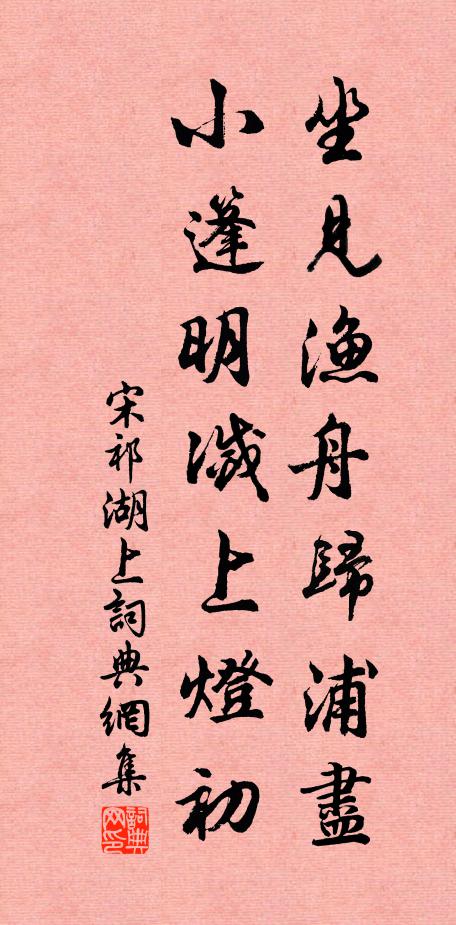 坐見漁舟歸浦盡
小蓬明滅上燈初
宋祁湖上詞典網集
詞典网印